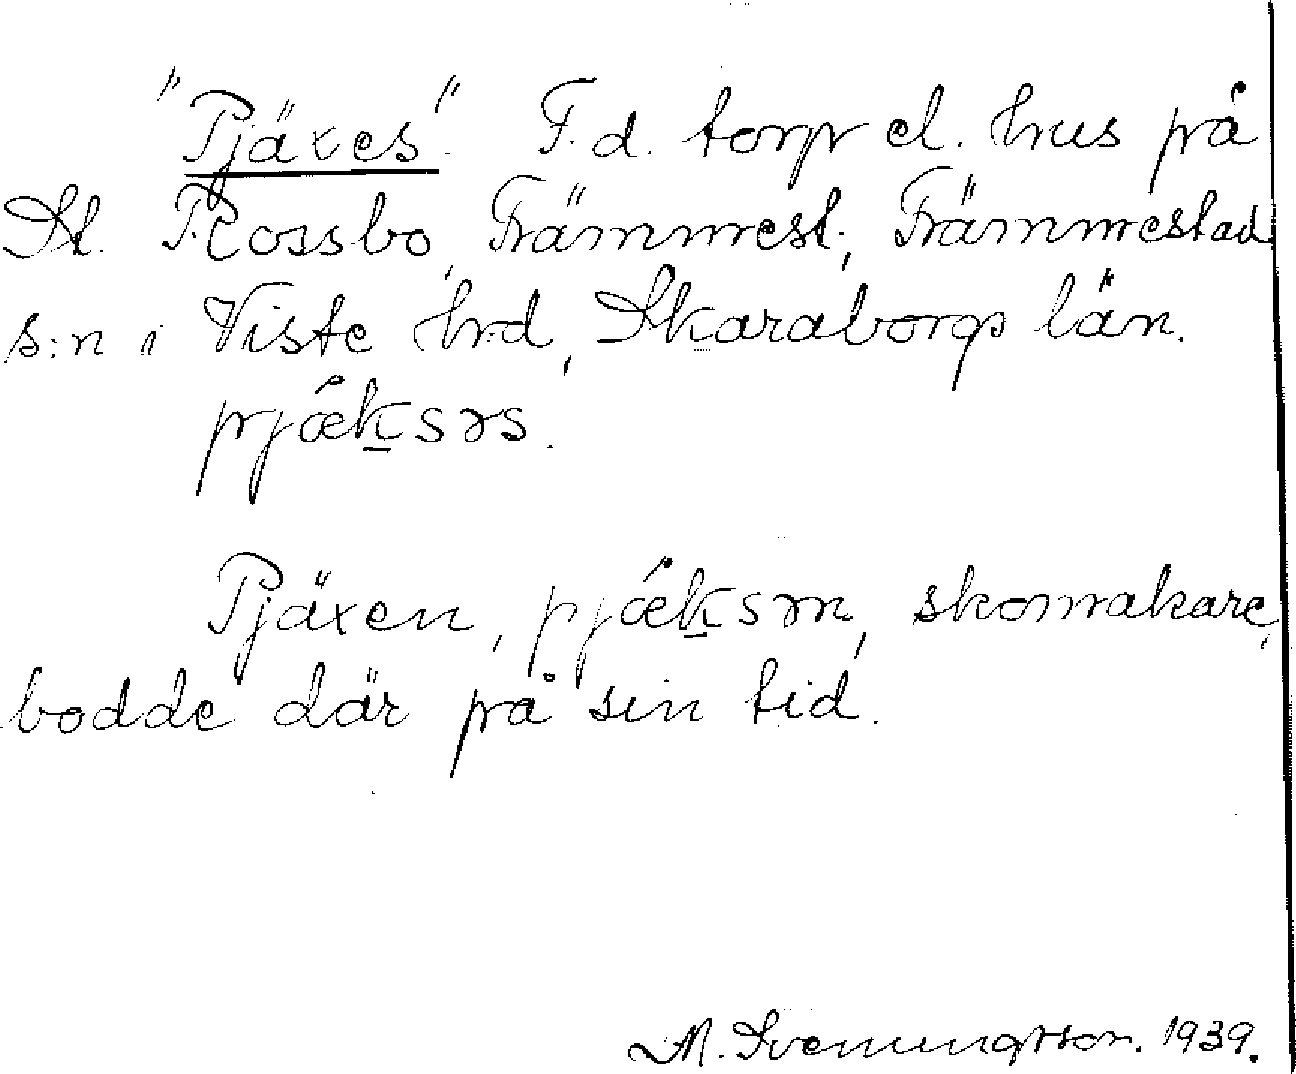 "Pjäxes". F.d. torp el. hus på
St. Rossbo, Främmest., Främmestad
s:n i Viste hrd, Skaraborgs län.
pjǽk̲səs.
Pjäxen, pjǽk̲sən, skomakare,
bodde där på sin tid.
M. Sveningsson. 1939.